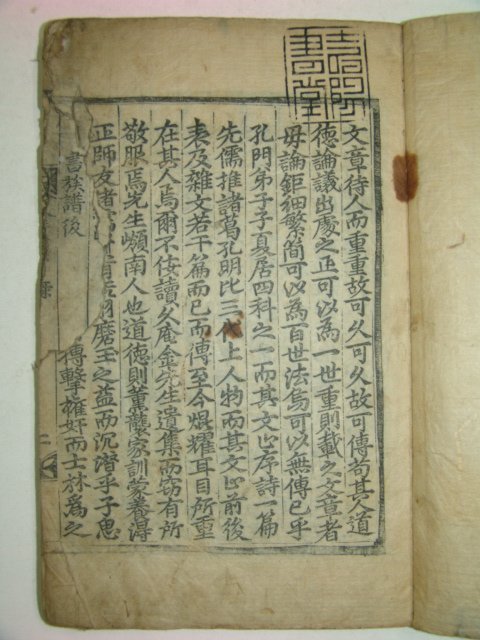 文章待人而重重故可久可久故可傳苟其人道
德論議出處之正可以為一世重則載之文章者
毋論鉅細繁簡可以為百世法烏可以無傳已乎
孔門弟子子夏居四科之一而其文止序詩一篇
先儒推諸葛孔明比三代上人物而其文止前後
表及雜文若干篇而已而傳至今焜耀耳目所重
在其人焉爾不佞讀久庵金先生遺集而窃有所
敬服焉先生嶺南人也道德則薰襲家訓蒙養得
正師友者磨玉之益而沉潛乎子思
書族譜後
傳擊權奸而士林爲之
二